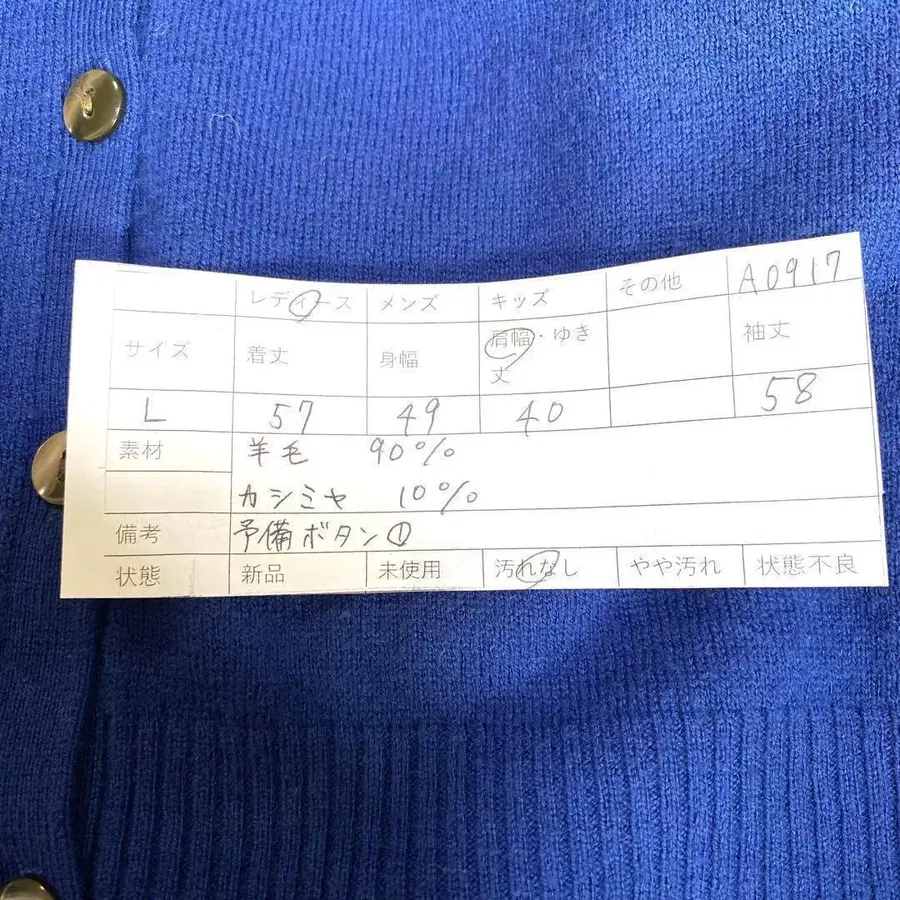 レディース メンズ キッズ その他 A0917
サイズ 着丈 身幅 肩幅・ゆき丈 袖丈
L 57 49 40 58
素材 羊毛 90%
カシミヤ 10%
備考 予備ボタン①
状態 新品 未使用 汚れなし やや汚れ 状態不良